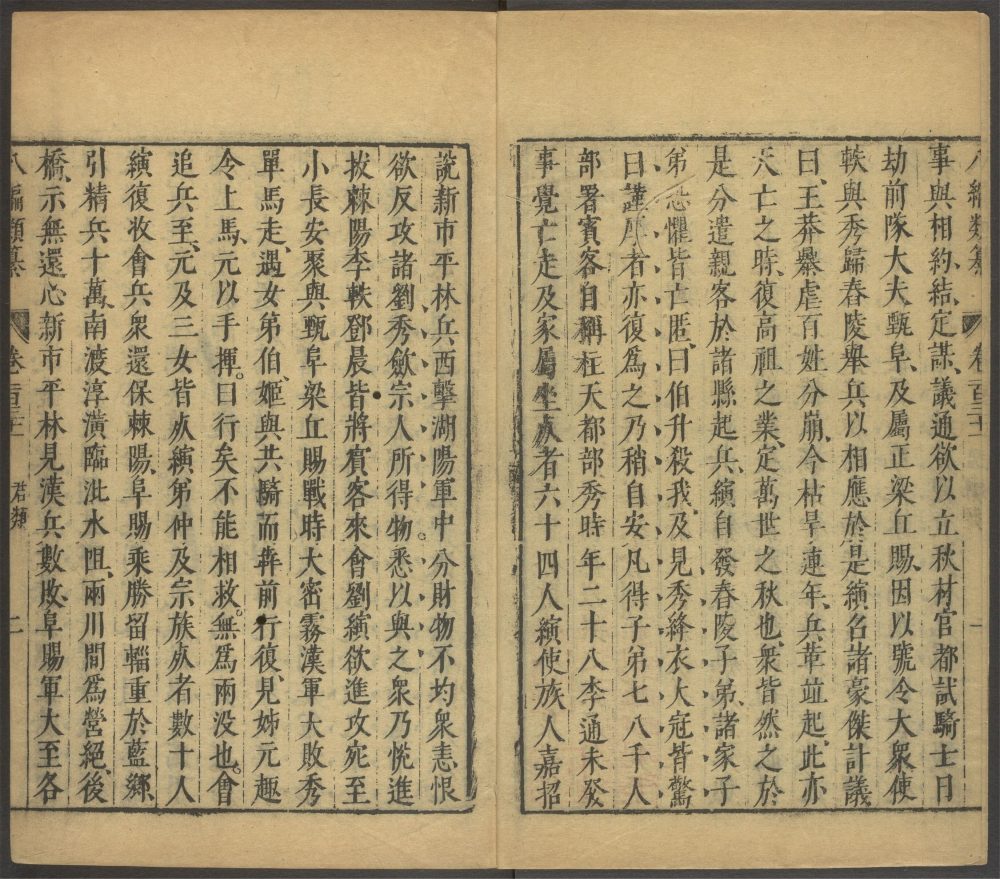 八編類纂 卷百三十一 一
事與相約結定謀議通欲以立秋材官都試騎士日
劫前隊大夫甄阜及屬正梁丘賜因以號令大衆使
軼與秀歸舂陵舉兵以相應於是縯名諸豪傑計議
曰王莽暴虐百姓分崩今枯旱連年兵革竝起此亦
天亡之時復高祖之業定萬世之秋也衆皆然之於
是分遣親客於諸縣起兵縯自發舂陵子弟諸家子
弟恐懼皆亡匿曰伯升殺我及見秀絳衣大冠皆驚
曰謹厚者亦復爲之乃稍自安凡得子弟七八千人
部署賓客自稱柱天都部秀時年二十八李通未發
事覺亡走及家屬坐死者六十四人縯使族人嘉招
說新市平林兵西擊湖陽軍中分財物不均衆恚恨
欲反攻諸劉秀斂宗人所得物悉以與之衆乃悅進
拔棘陽李軼鄧晨皆將賓客來會劉縯欲進攻宛至
小長安聚與甄阜梁丘賜戰時大密霧漢軍大敗秀
單馬走遇女弟伯姬與共騎而犇前行復見姊元趣
令上馬元以手揮曰行矣不能相救無爲兩没也會
追兵至元及三女皆死縯弟仲及宗族死者數十人
縯復收會兵衆還保棘陽阜賜乘勝留輜重於藍鄉
引精兵十萬南渡淳潢臨沘水阻兩川間爲營絕後
橋示無還心新市平林見漢兵數敗阜賜軍大至各
八編類纂 卷百三十一 君類 二